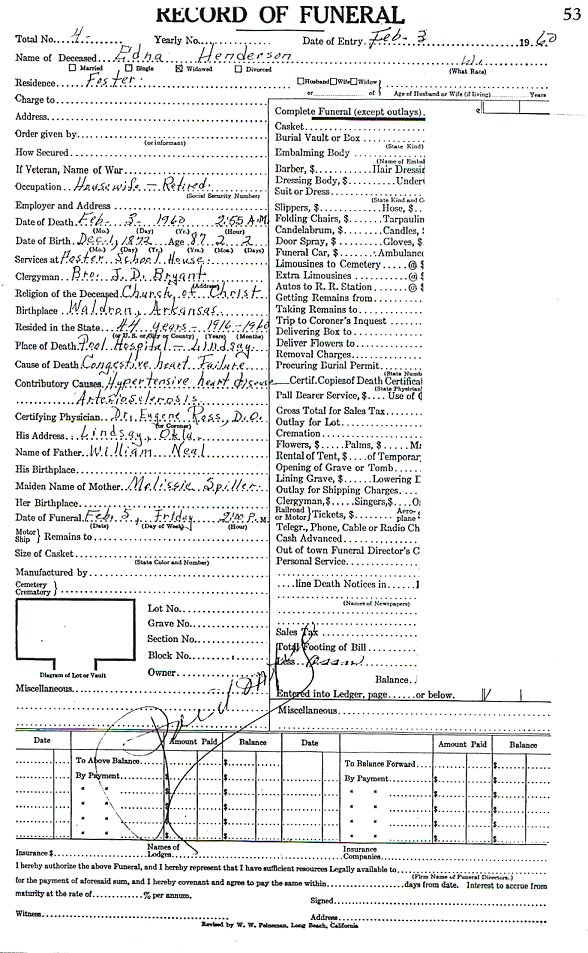 RECORD OF FUNERAL
53
Total No. 4- Yearly No. Date of Entry Feb- 3 1960
Name of Deceased Edna Henderson W.
Married Single Widowed Divorced (What Race)
Residence Foster. Husband Wife Widow
or of Age of Husband or Wife (if living) Years
Charge to
Address
Order given by
(or informant)
How Secured
If Veteran, Name of War
Occupation Housewife - Retired.
(Social Security Number)
Employer and Address
Date of Death Feb- 3- 1960 2:55 A.M.
(Mo.) (Day) (Yr.) (Hour)
Date of Birth Dec. 1, 1872 Age 87. 2 2
(Mo.) (Day) (Yr.) (Yrs.) (Mos.) (Days)
Services at Foster School House.
(Address)
Clergyman Bro. J. D. Bryant
Religion of the Deceased Church of Christ
Birthplace Waldron, Arkansas
Resided in the State 44 years - 1916-1960
(or U. S. or City or County) (Years) (Months)
Place of Death Pool Hospital - Lindsay.
Cause of Death Congestive heart Failure
Contributory Causes Hypertensive heart disease
Artesiosclerosis
Certifying Physician Dr. Eugene Ross, D.O.
(or Coroner)
His Address Lindsay, Okla.
Name of Father William Neal
His Birthplace
Maiden Name of Mother Melissie Spiller
Her Birthplace
Date of Funeral Feb. 5, Friday 2:00 P. M.
(Date) (Day of Week) (Hour)
Motor Ship Remains to
Size of Casket
(State Color and Number)
Manufactured by
Cemetery Crematory
Lot No.
Grave No.
Section No.
Block No.
Owner
Diagram of Lot or Vault
Miscellaneous
Complete Funeral (except outlays)
Casket
Burial Vault or Box
(State Kind)
Embalming Body
(Name of Embal
Barber, $ Hair Dressi
Dressing Body, $ Under
Suit or Dress
(State Kind and C
Slippers, $ Hose, $
Folding Chairs, $ Tarpaulin
Candelabrum, $ Candles, $
Door Spray, $ Gloves, $
Funeral Car, $ Ambulanc
Limousines to Cemetery @ $
Extra Limousines @ $
Autos to R. R. Station @ $
Getting Remains from
Taking Remains to
Trip to Coroner's Inquest
Delivering Box to
Deliver Flowers to
Removal Charges
Procuring Burial Permit
(State Numb
Certif. Copies of Death Certifica
(State Physician
Pall Bearer Service, $ Use of C
Gross Total for Sales Tax
Outlay for Lot
Cremation
Flowers, $ Palms, $ Ma
Rental of Tent, $ of Temporar
Opening of Grave or Tomb
Lining Grave, $ Lowering D
Outlay for Shipping Charges
Clergyman, $ Singers, $ O
Railroad or Motor Tickets, $ Aero-plane
Telegr., Phone, Cable or Radio Ch
Cash Advanced
Out of town Funeral Director's C
Personal Service
line Death Notices in
(Names of Newspapers)
Sales Tax
Total Footing of Bill
Less
Balance
Entered into Ledger, page or below.
Miscellaneous
Date Amount Paid Balance Date Amount Paid Balance
To Above Balance To Balance Forward
By Payment By Payment
" " " "
" " " "
" " " "
" " " "
Insurance $ Names of Lodges Insurance Companies
I hereby authorize the above Funeral, and I hereby represent that I have sufficient resources Legally available to
(Firm Name of Funeral Directors.)
for the payment of aforesaid sum, and I hereby covenant and agree to pay the same within days from date. Interest to accrue from
maturity at the rate of % per annum.
Signed
Witness Address
Revised by W. W. Feineman, Long Beach, California